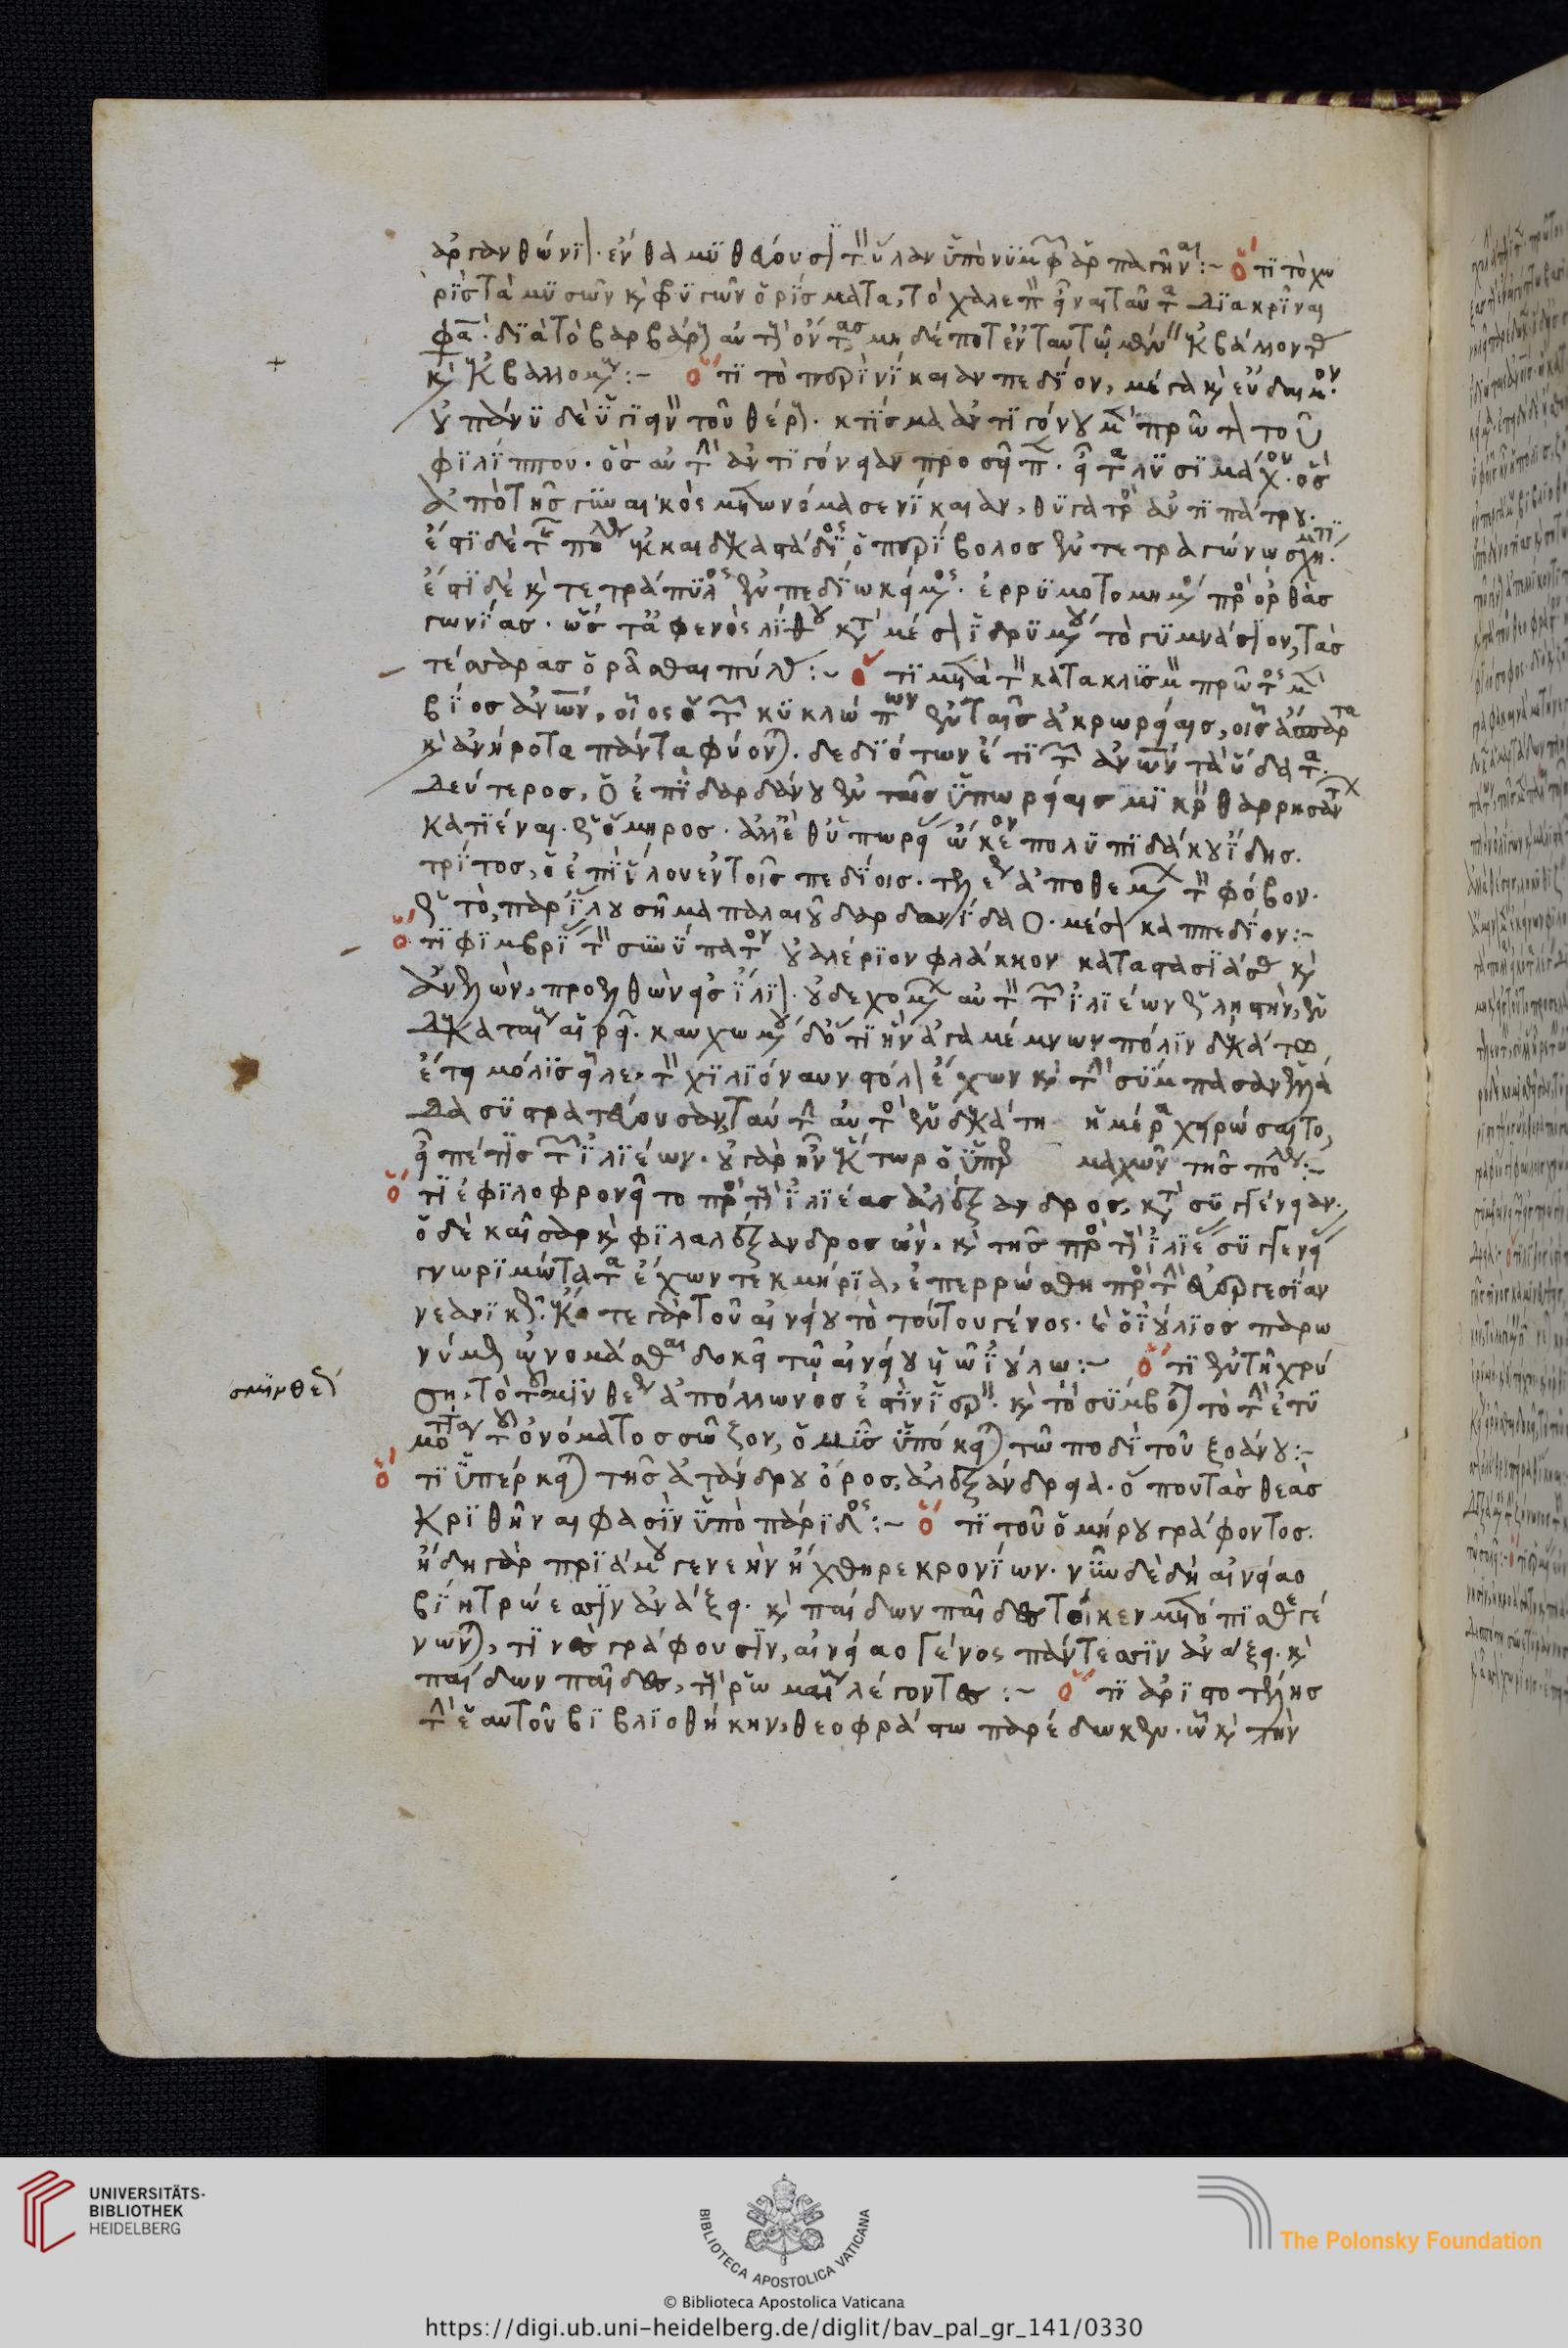 ἀργανθώνιον. ἔνθα μυθεύουσι τὸν ὕλαν ὑπὸ νυμφῶν ἁρπαγῆναι :~ ὅτι τὸ χω
ρὶς τὰ μυσῶν καὶ φρυγῶν ὁρίσματα, τὸ χαλεπὸν εἶναι ταῦτα διακρῖναι
φασί· διὰ τὸ βαρβάρους αὐτοὺς ὄντας μηδέποτ' ἐν ταυτῷ μένειν ἐκβάλλοντας
καὶ ἐκβαλλομένους :~ ὅτι τὸ περὶ νίκαιαν πεδίον, μέγα καὶ εὔδαιμον·
οὐ πάνυ δὲ ὑγιεινὸν τοῦ θέρους. κτίσμα ἀντιγόνου μὲν πρῶτον τοῦ
φιλίππου. ὃς αὐτὴν ἀντιγόνειαν προσεῖπεν. εἶτα λυσιμάχου. ὃς
ἀπὸ τῆς γυναικὸς μετωνόμασε νίκαιαν, θυγατρὸς ἀντιπάτρου.
ἔστι δὲ τῆς πόλεως ἑκκαιδεκαστάδιος ὁ περίβολος ἐν τετραγώνῳ σχήματι.
ἔστι δὲ καὶ τετράπυλος ἐν πεδίῳ κείμενος. ἐρρυμοτομημένος πρὸς ὀρθὰς
γωνίας. ὥστ' ἀφ' ἑνὸς λίθου κατὰ μέσον ἱδρυμένου τὸ γυμνάσιον, τὰς
τέσσαρας ὁρᾶσθαι πύλας :~ ὅτι μετὰ τὸν κατακλυσμὸν πρῶτος μὲν
βίος ἀνθρώπων, οἷος ὁ τῶν κυκλώπων ἐν ταῖς ἀκρωρείαις, οἷς ἄσπαρτα
καὶ ἀνήροτα πάντα φύονται. δεδιότων ἔτι τῶν ἀνθρώπων τὰ ὕδατα.
δεύτερος, ὁ ἐπὶ δαρδάνου ἐν ταῖς ὑπωρείαις μικρὸν θαρρησάντων
κατιέναι. ὡς ὅμηρος. ἀλλ' ἔθ' ὑπωρείας ᾤκεον πολυπιδάκου ἴδης.
τρίτος, ὁ ἐπὶ ἴλου ἐν τοῖς πεδίοις. τελέως ἀποθεμένων τὸν φόβον.
ὡς τὸ, παρ' ἴλου σῆμα παλαιοῦ δαρδανίδαο. μέσον κὰπ πεδίον :~
ὅτι φιμβρίας τὸν σὺν ὕπατον οὐαλέριον φλάκκον καταστασιάσας καὶ
ἀνελών, προελθὼν εἰς ἴλιον. οὐ δεχομένων αὐτὸν τῶν ἰλιέων ὡς λῃστὴν, ἐν
δεκαταῖος αἱρεῖ. καυχωμένου δ' ὅτι ἣν ἀγαμέμνων πόλιν δεκάτῳ
ἔτει μόλις εἷλε, τὸν χιλιόναυν στόλον ἔχων καὶ τὴν σύμπασαν ἑλλά
δα συστρατεύουσαν, ταύτην αὐτὸς ἐν δεκάτῃ ἡμέρᾳ χειρώσαιτο,
εἶπέ τις τῶν ἰλιέων. οὐ γὰρ ἦν ἕκτωρ ὁ ὑπερ μαχῶν τῆς πόλεως :~
ὅτι ἐφιλοφρονεῖτο πρὸς τοὺς ἰλιέας ἀλέξανδρος, κατὰ συγγένειαν.
ὁ δὲ καῖσαρ καὶ φιλαλέξανδρος ὤν, καὶ τῆς πρὸς τοὺς ἰλιέας συγγενείας
γνωριμώτατα ἔχων τεκμήρια, ἐπερρώσθη πρὸς τὴν εὐεργεσίαν
νεανικῶς. ἔκ τε γὰρ τοῦ αἰνείου τὸ τούτου γένος. καὶ ὁ ἰούλιος παρω
νύμως ὠνομάσθαι δοκεῖ τῷ αἰνείου υἱῷ ἰούλῳ :~ ὅτι ἐν τῇ χρύ
σμινθεύς
σῃ, τὸ τοῦ σμινθέως ἀπόλλωνος ἐστὶν ἱερόν. καὶ τὸ σύμβολον τὸ τὴν ἐτυ
μότητα τοῦ ὀνόματος σῶζον, ὁ μῦς ὑπόκειται τῷ ποδὶ τοῦ ξοάνου :~
ὅτι ὑπέρκειται τῆς ἀτάνδρου ὄρος, ἀλεξάνδρεια. ὅπου τὰς θεὰς
κριθῆναι φασὶν ὑπὸ πάριδος :~ ὅτι τοῦ ὁμήρου γράφοντος.
ἤδη γὰρ πριάμου γενεὴν ἤχθηρε κρονίων. νῦν δὲ δὴ αἰνείαο
βίη τρώεσσιν ἀνάξει. καὶ παίδων παῖδες τοί κεν μετόπισθε γέ
νωνται, τινὲς γράφουσιν, αἰνείαο γένος πάντεσσιν ἀνάξει. καὶ
παίδων παῖδες, τοὺς ῥωμαίους λέγοντες :~ ὅτι ἀριστοτέλης
τὴν ἑαυτοῦ βιβλιοθήκην, θεοφράστῳ παρέδωκεν. ᾧ καὶ τὴν
UNIVERSITÄTS-
BIBLIOTHEK
HEIDELBERG
BIBLIOTECA APOSTOLICA VATICANA
The Polonsky Foundation
© Biblioteca Apostolica Vaticana
https://digi.ub.uni-heidelberg.de/diglit/bav_pal_gr_141/0330